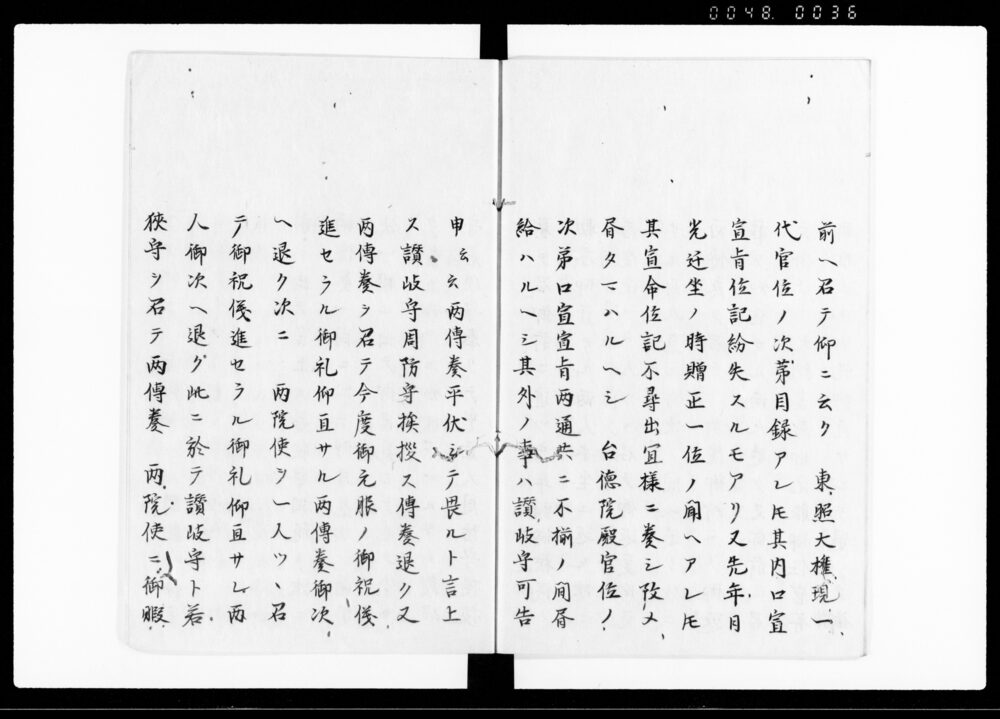 0048. 0036
前ヘ召テ仰ニ云ク　東照大権現一
代官位ノ次第目録アレ𪜈其内口宣
宣旨位記紛失スルモアリ又先年日
光迁坐ノ時贈正一位ノ聞ヘアレ𪜈
其宣命位記不尋出宜様ニ奏シ改メ
屑タマハルヘシ　台徳院殿官位ノ
次第口宣宣旨両通共ニ不揃ノ間屑
給ハルヘシ其外ノ事ハ讃岐守可告
申ト云云両傳奏平伏シテ畏ルト言上
ス讃岐守周防守挨拶ス傳奏退ク又
両傳奏ヲ召テ今度御元服ノ御祝儀
進セラル御礼仰且サル両傳奏御次
ヘ退ク次ニ　両院使ヲ一人ツヽ召
テ御祝儀進セラル御礼仰且サレ両
人御次ヘ退ク此ニ於テ讃岐守ト若
狭守ヲ召テ両傳奏　両院使ニ御暇